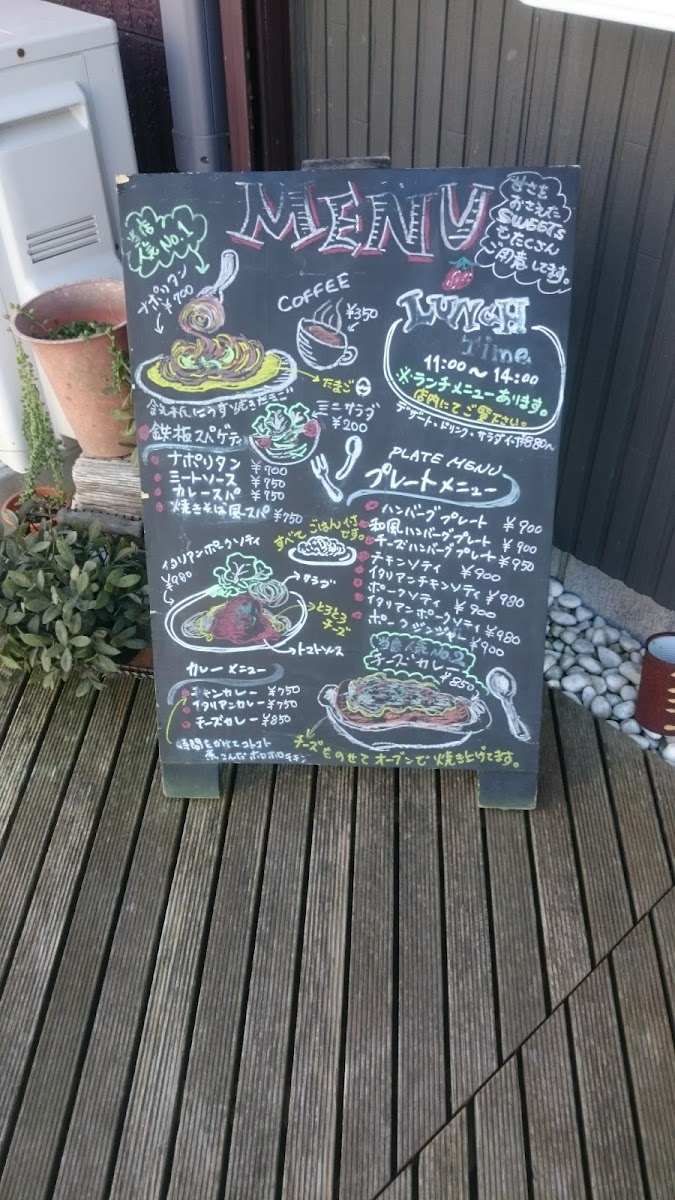 MENU
当店
人気No.1
甘さを
おさえた
SWEETS
もたくさん
用意してます。
ナポリタン
¥700
COFFEE
¥350
LUNCH
Time
11:00〜14:00
※ランチメニューあります。
店内にてご覧下さい。
デザート・ドリンク・サラダ付
¥880〜
たまご
ミニサラダ
¥200
鉄板スパゲティ
ナポリタン ¥700
ミートソース ¥750
カレースパ ¥750
焼きそば風スパ ¥750
PLATE MENU
プレートメニュー
すべてごはん付
です。
ハンバーグプレート ¥900
和風ハンバーグプレート ¥900
チーズハンバーグプレート ¥950
チキンソティ ¥900
イタリアンチキンソティ ¥980
ポークソティ ¥900
イタリアンポークソティ ¥980
ポークジンジャー ¥900
イタリアンポークソティ
¥980
サラダ
とろとろ
チーズ
トマトソース
カレーメニュー
チキンカレー ¥750
イタリアンカレー ¥750
チーズカレー ¥850
時間をかけてコトコト
煮こんだホロホロチキン
当店人気No.2
チーズカレー
¥850
チーズをのせてオーブンで焼き上げてます。